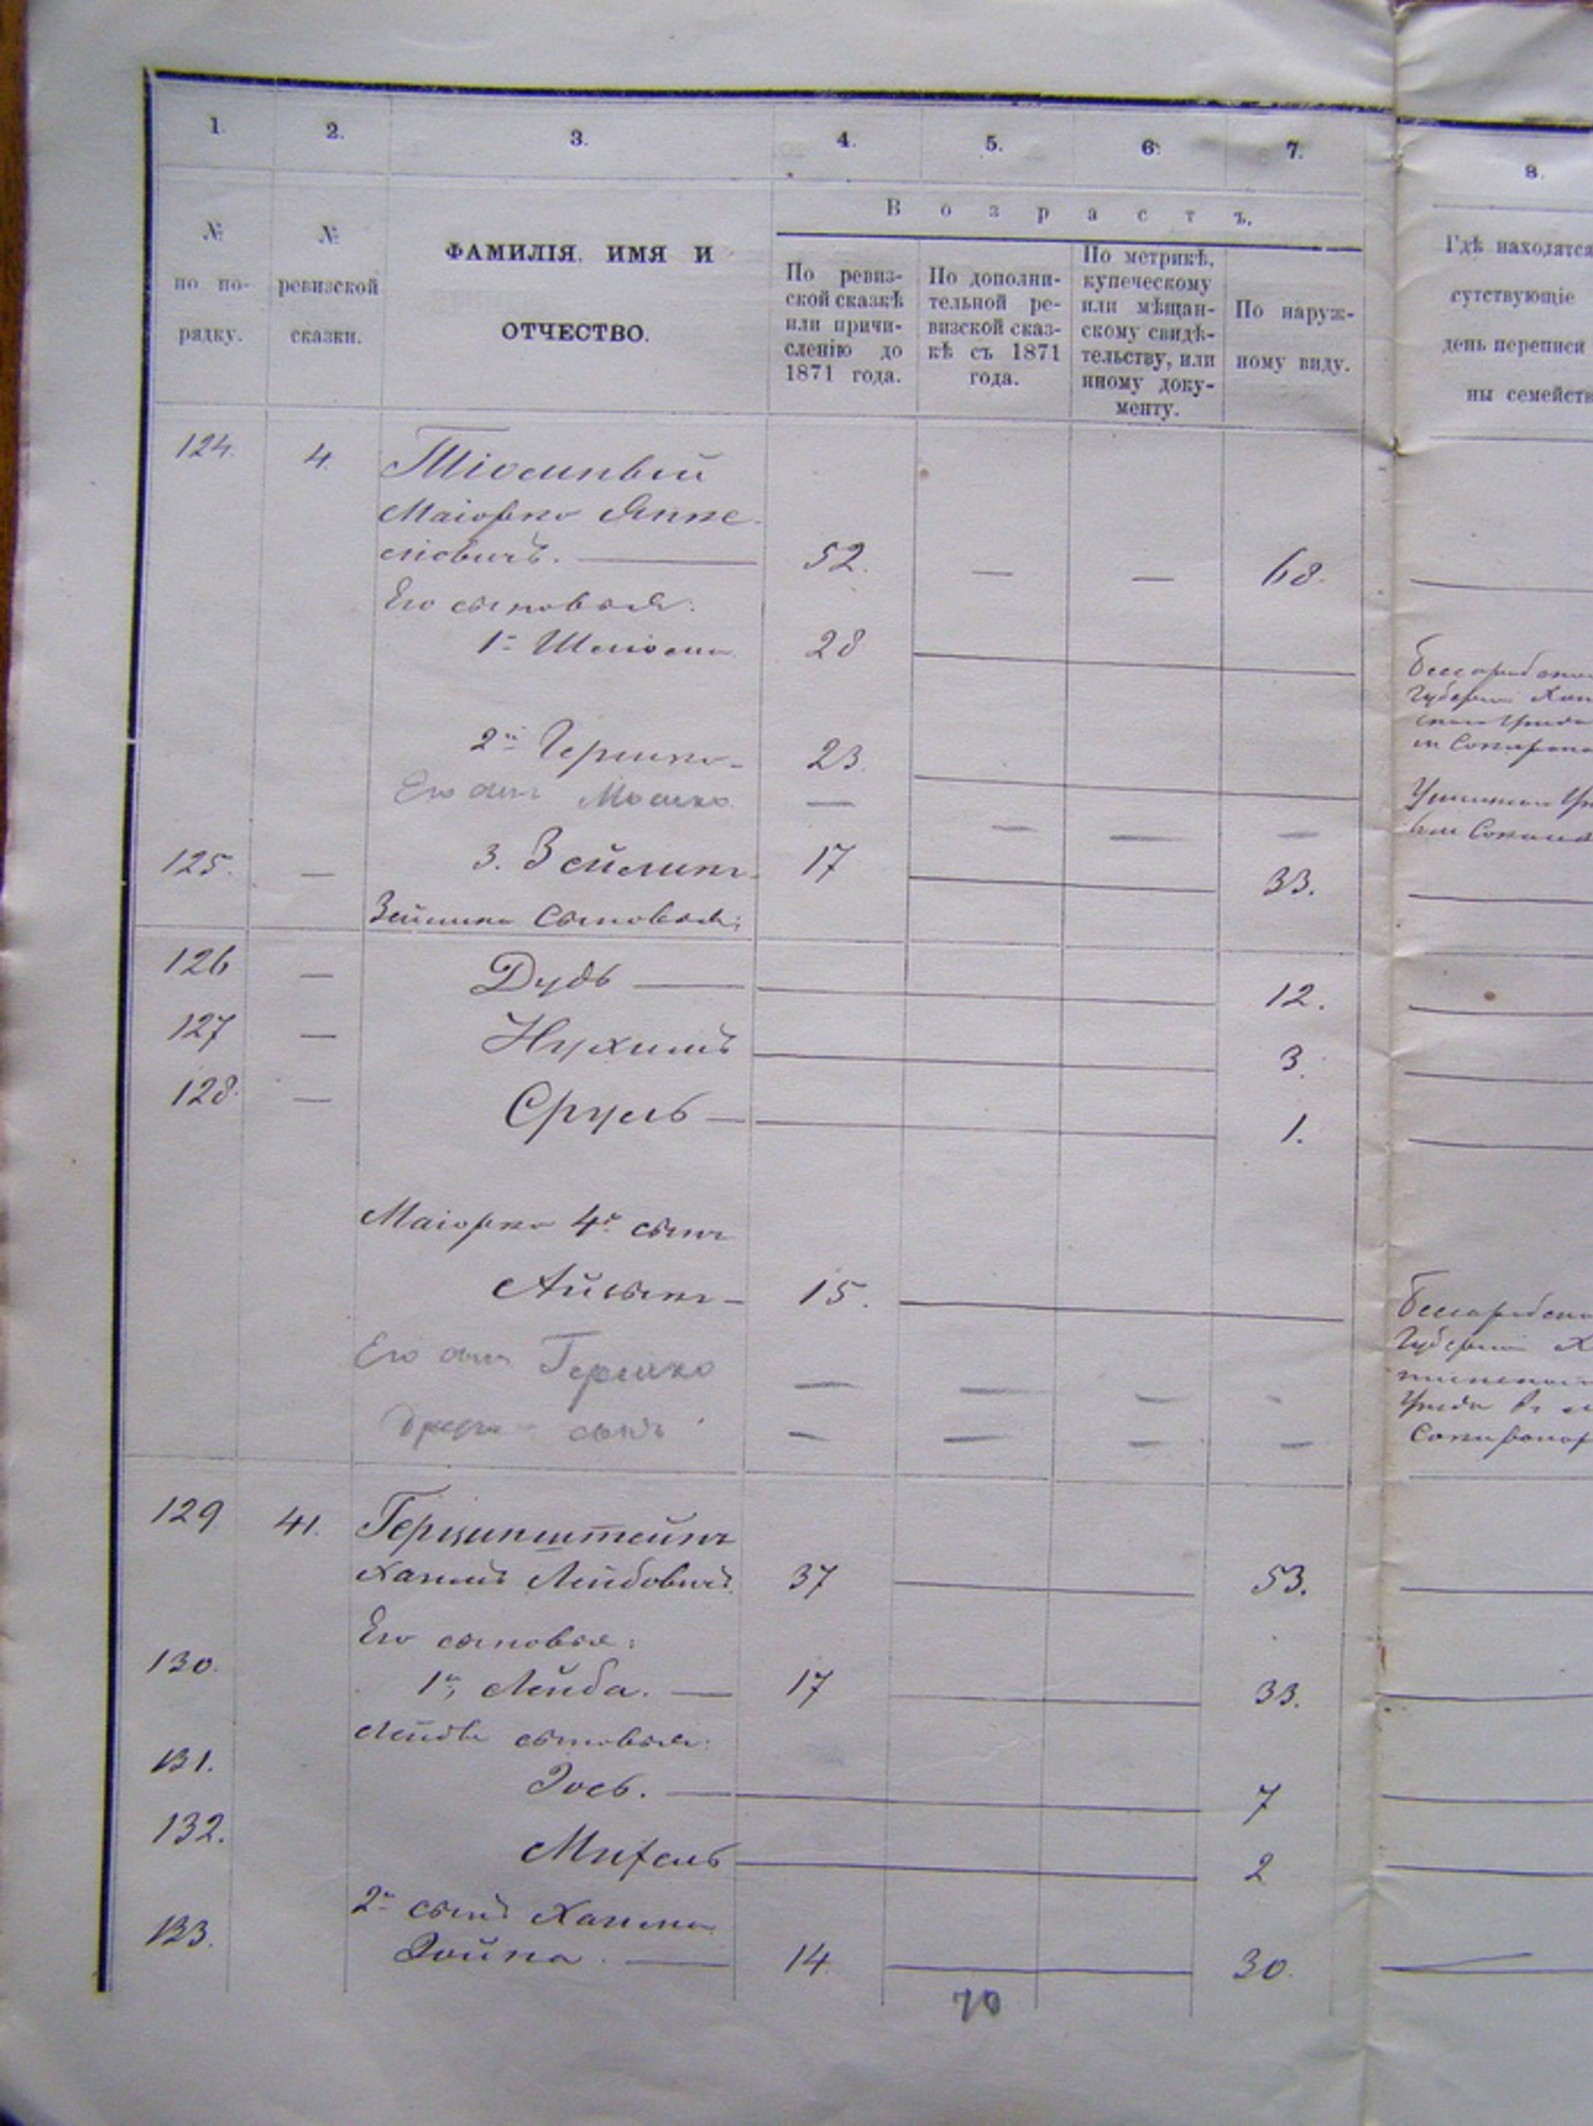 1. 2. 3. 4. 5. 6. 7. 8.
В о з р а с т ъ.
№ по по-рядку.
№ ревизской сказки.
ФАМИЛІЯ, ИМЯ И
ОТЧЕСТВО.
По ревиз-
ской сказкѣ
или причи-
сленію до
1871 года.
По дополни-
тельной ре-
визской сказ-
кѣ съ 1871
года.
По метрикѣ,
купеческому
или мѣщан-
скому свидѣ-
тельству, или
иному доку-
менту.
По наруж-
ному виду.
Гдѣ находятся
сутствующіе
день переписи
ны семейств
124. 4.
Маіорко Янке-
левичъ. — 52. — — 68.
Его сыновья:
1й 28 —
Бессарабской
Губерніи
2й Гершко — 23. —
Его сынъ Мошко — — — —
125. — 3. Зейликъ 17 — 33. —
Зейлика Сыновья:
126 — Дудь — 12. —
127 — Нухимъ — 3. —
128. — Сруль — 1. —
Маіорко 4й сынъ
15. —
Бессарабской
Губерніи
Его сынъ Гершко — — — -
сынъ — — — —
129 41. Герценштейнъ
Хаимъ Лейбовичъ 37 — 53. —
Его сыновья:
130. 1й, Лейба. — 17 — 33. —
Лейбы сыновья:
131. Іось. — 7 —
132. — 2 —
2й сынъ Хаима
133. Іойна. — 14. — 30. —
70